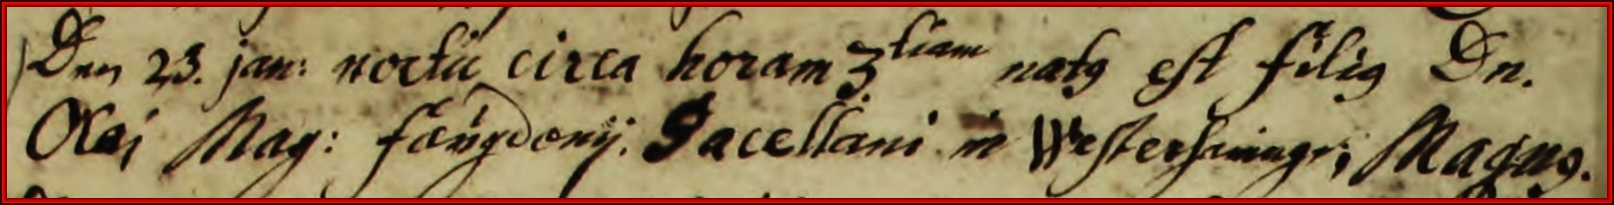 Den 23. jan: noctu circa horam 3tiam natus est filius Dn.
Olai Mag: Sacellani in Westerhaninge; Magnus.